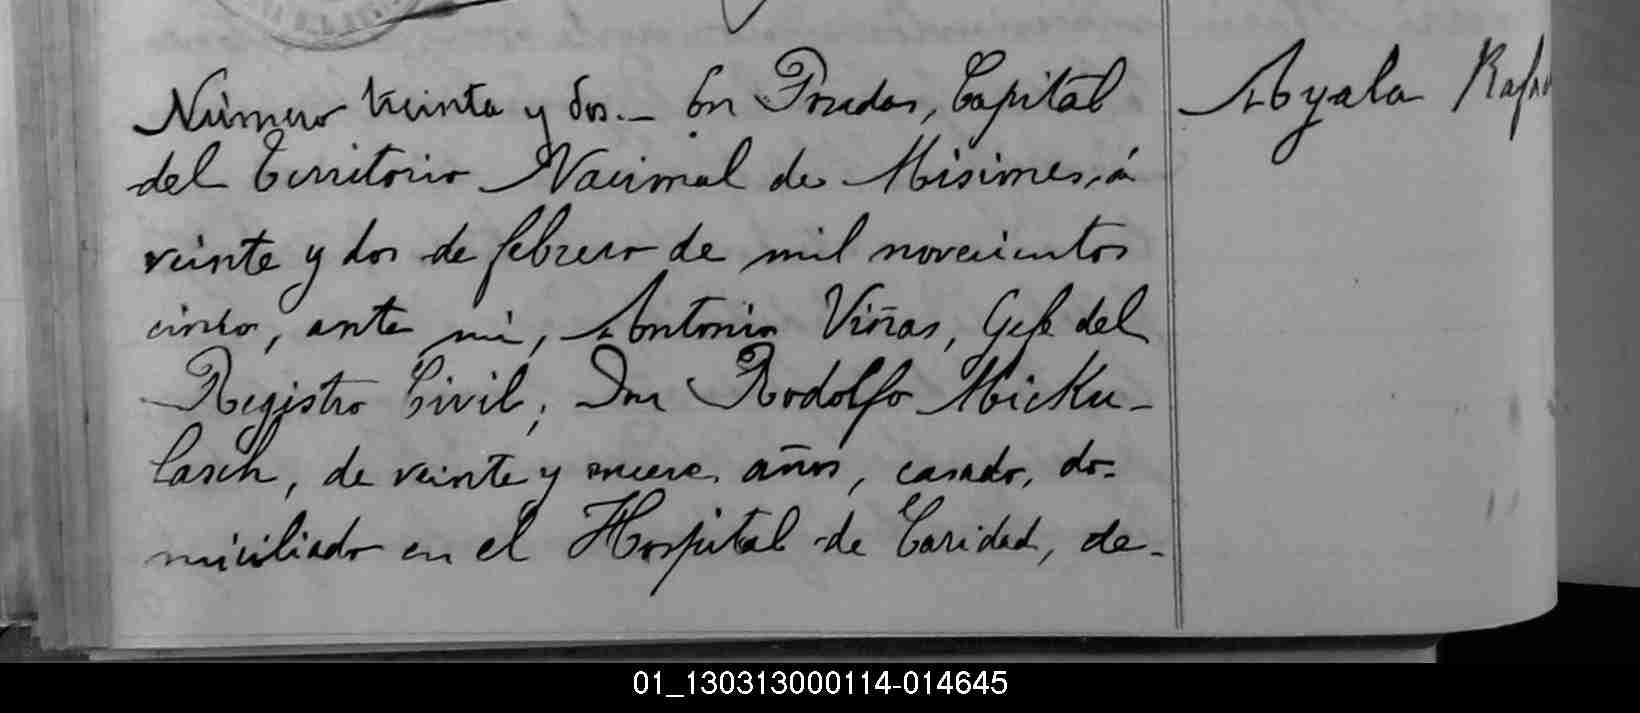 Número treinta y dos._ En Posadas, Capital
del Territorio Nacional de Misiones, á
veinte y dos de febrero de mil novecientos
cinco, ante mi, Antonio Viñas, Gefe del
Registro Civil, Don Rodolfo Micku-
lasch, de veinte y nueve años, casado, do-
miciliado en el Hospital de Caridad, de-
Ayala Rafae
01_130313000114-014645